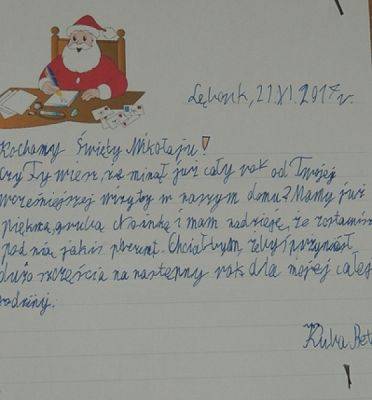 Lębork, 21.XI.2017r.
Kochany Święty Mikołaju!
Czy Ty wiesz, że minął już cały rok od Twojej
wcześniejszej wizyty w naszym domu? Mamy już
piękną, grubą choinkę i mam nadzieję, że zostawisz
pod nią jakiś prezent. Chciałbym, żebyś przyniósł
dużo szczęścia na następny rok dla mojej całej
rodziny.
Kuba